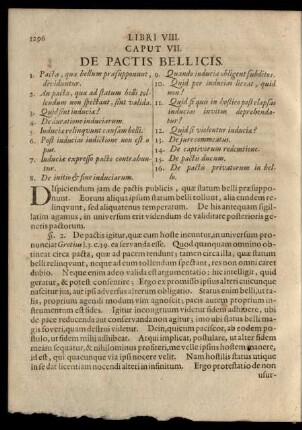 1296 LIBRI VIII.
CAPUT VII.
DE PACTIS BELLICIS.
1. Pacta, quæ bellum præsupponunt,
dividuntur.
2. An pacta, quæ ad statum belli tol-
lendum non spectant, sint valida.
3. Quid sint induciæ?
4. De duratione induciarum.
5. Induciæ relinquunt causam belli.
6. Post inducias indictione non est o-
pus.
7. Induciæ expresso pacto contrahun-
tur.
8. De initio & fine induciarum.
9. Quando induciæ obligent subditos.
10. Quid per inducias liceat, quid
non?
11. Quid si quis in hostico post elapsas
inducias inventus deprehenda-
tur?
12. Quid si violentur induciæ?
13. De jure commeatus.
14. De captivorum redemtione.
15. De pactis ducum.
16. De pactis privatorum in bel-
lo.
DIspiciendum jam de pactis publicis, quæ statum belli præsuppo-
nunt. Eorum aliqua ipsum statum belli tollunt, alia eundem re-
linqvunt, sed aliquatenus temperatum. De his antequam sigil-
latim agamus, in universum erit videndum de validitate posterioris ge-
neris pactorum.
§. 2. De pactis igitur, quæ cum hoste ineuntur, in universum pro-
nunciat Grotius l. 3. c. 19. ea servanda esse. Quod quanquam omnino ob-
tineat circa pacta, quæ ad pacem tendunt; tamen circa illa, quæ statum
belli relinquunt, neque ad eum tollendum spectant, res non omni caret
dubio. Neque enim adeo valida est argumentatio: hic intelligit, quid
geratur, & potest consentire; Ergo ex promissis ipsius alteri cuicunque
nascitur jus, aut ipsi adversus alterum obligatio. Status enim belli, ut ta-
lis, propriam agendi modum vim agnoscit; pacis autem proprium in-
strumentum est fides. Igitur incongruum videtur fidem adhibere, ubi
de pace reducenda aut conservanda non agitur; imo ubi status belli ma-
gis foveri, quam destrui videtur. Dein, quicum paciscor, ab eodem po-
stulo, ut fidem mihi adhibeat. Atqui implicat, postulare, ut alter fidem
meam sequatur, & nihilominus profiteri, me velle ipsius hostem manere,
id est, qui quacunque via ipsi nocere velit. Nam hostilis status utique
in se dat licentiam nocendi alteri in infinitum. Ergo protestatio de non
usur-